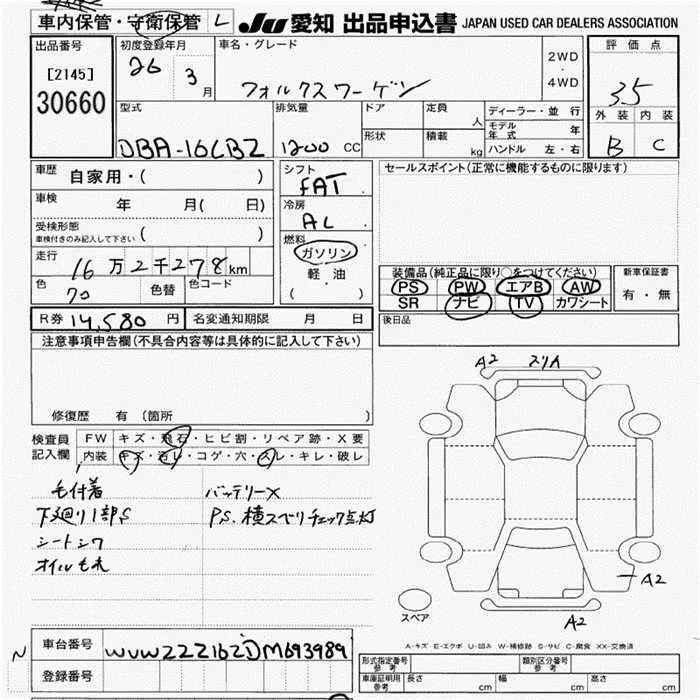 車内保管・守衛保管 L JU 愛知 出品申込書 JAPAN USED CAR DEALERS ASSOCIATION
出品番号 初度登録年月 車名・グレード 2WD 評価点
[2145] 26 3月 ・
30660 フォルクスワーゲン 4WD 3.5
型式 排気量 ドア 定員 人 ディーラー・並行 外装 内装
モデル年式 年
DBA-16CBZ 1200 CC 形状 積載 kg ハンドル 左・右 B C
車歴 自家用・( ) シフト FAT セールスポイント(正常に機能するものに限ります)
車検 年 月( 日) 冷房 AC
受検形態 ( )
車検付きのみ記入して下さい
燃料
走行 16万2千278km ガソリン 装備品(純正品に限り○をつけてください) 新車保証書
軽・油 PS PW エアB AW 有・無
色 70 色替 色コード ( ) SR ナビ TV カワシート
R券 14,580 円 名変通知期限 月 日 後日品
注意事項申告欄(不具合内容等は具体的に記入して下さい)
A2 スリA
修復歴 有(箇所 )
検査員 FW キズ・飛石・ヒビ割・リペア跡・X要
記入欄 内装 キズ・汚レ・コゲ・穴・スレ・キレ・破レ
毛付着 バッテリーX
下廻り1部S PS、横スベリチェック点灯
シートシワ
オイルもれ
A2
スペア
A2
A-キズ E-エクボ U-凹み W-補修跡 S-サビ C-腐食 XX-交換済
N 車台番号 WVWZZZ16ZDM693989
型式指定番号 参考 類別区分番号 参考
登録番号 車庫証明用 参考 長さ cm 幅 cm 高さ cm